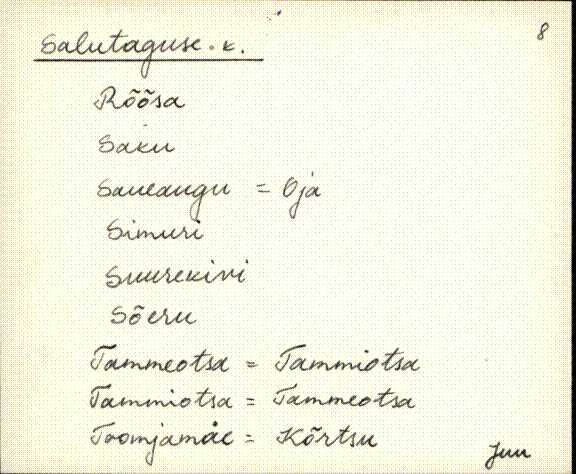 Salutaguse.k. 8
Rõõsa
Saku
Saueaugu = Oja
Simuri
Suurekivi
Sõeru
Tammeotsa = Tammiotsa
Tammiotsa = Tammeotsa
Toomjamäe = Kõrtsu
Juu